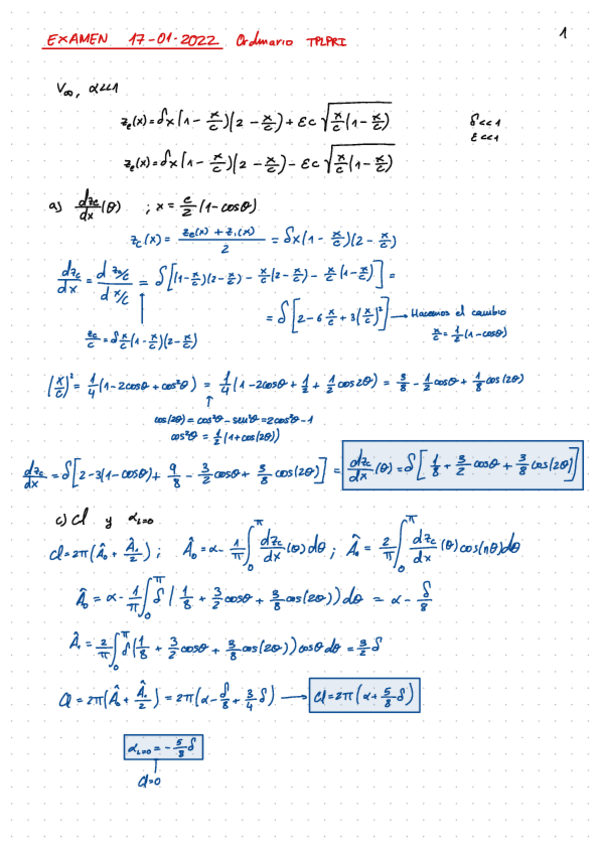 1
EXAMEN 17-01-2022 Ordinario TPLPRI
V∞, α<<1
z_e(x) = δx(1 - x/c)(2 - x/c) + εc √(x/c(1 - x/c))
δ<<1
ε<<1
z_e(x) = δx(1 - x/c)(2 - x/c) - εc √(x/c(1 - x/c))
a) dz_c/dx (θ) ; x = c/2 (1 - cosθ)
z_c(x) = (z_e(x) + z_i(x))/2 = δx(1 - x/c)(2 - x/c)
dz_c/dx = d z_c/c / d x/c = δ[(1 - x/c)(2 - x/c) - x/c(2 - x/c) - x/c(1 - x/c)] =
= δ[2 - 6 x/c + 3(x/c)²] → Hacemos el cambio
z_c/c = δ x/c (1 - x/c)(2 - x/c)
x/c = 1/2 (1 - cosθ)
(x/c)² = 1/4 (1 - 2cosθ + cos²θ) = 1/4 (1 - 2cosθ + 1/2 + 1/2 cos2θ) = 3/8 - 1/2 cosθ + 1/8 cos(2θ)
cos(2θ) = cos²θ - sen²θ = 2cos²θ - 1
cos²θ = 1/2 (1 + cos(2θ))
dz_c/dx = δ[2 - 3(1 - cosθ) + 9/8 - 3/2 cosθ + 3/8 cos(2θ)] = dz_c/dx (θ) = δ[1/8 + 3/2 cosθ + 3/8 cos(2θ)]
c) Cl y α_{L=0}
Cl = 2π(Â₀ + Â₁/2) ; Â₀ = α - 1/π ∫₀^π dz_c/dx (θ) dθ ; Âₙ = 2/π ∫₀^π dz_c/dx (θ) cos(nθ) dθ
Â₀ = α - 1/π ∫₀^π δ(1/8 + 3/2 cosθ + 3/8 cos(2θ)) dθ = α - δ/8
Â₁ = 2/π ∫₀^π δ(1/8 + 3/2 cosθ + 3/8 cos(2θ)) cosθ dθ = 3/2 δ
Cl = 2π(Â₀ + Â₁/2) = 2π(α - δ/8 + 3/4 δ) → Cl = 2π(α + 5/8 δ)
α_{L=0} = - 5/8 δ
Cl=0